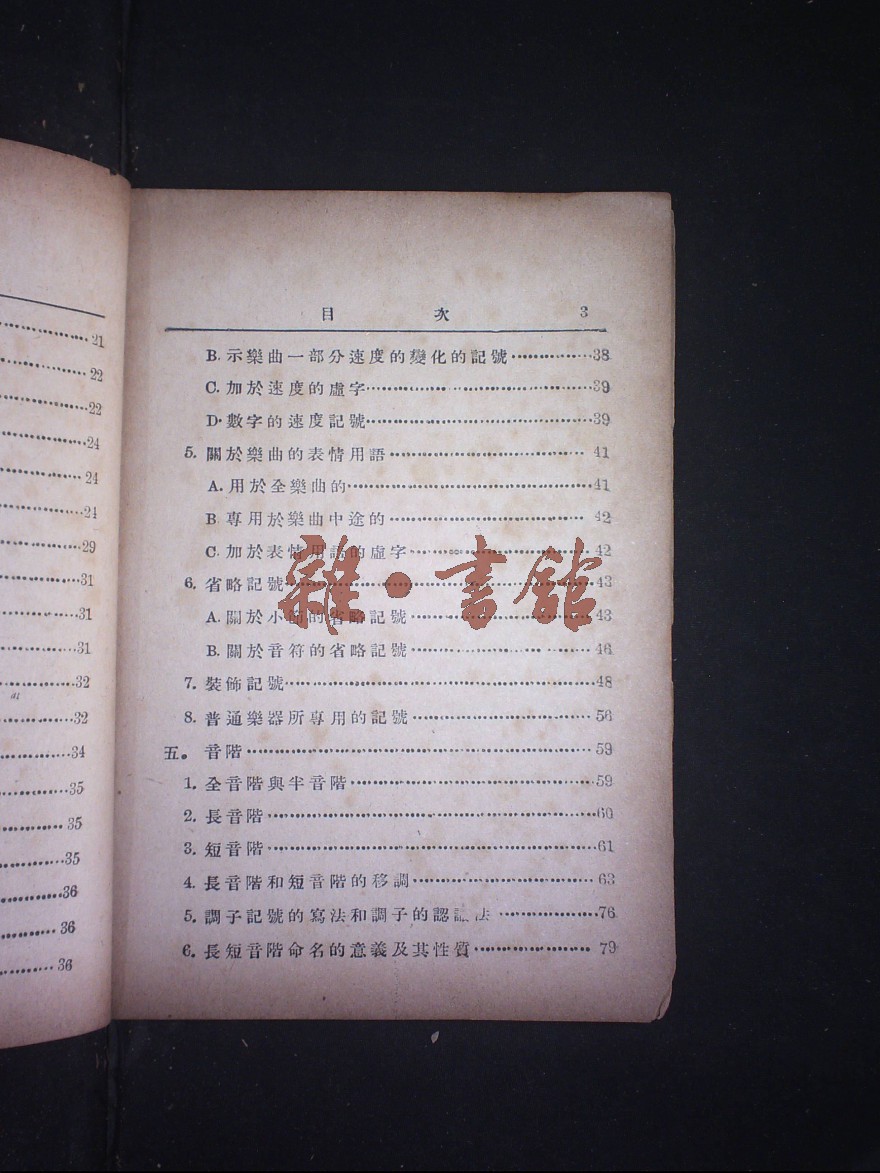 21
22
22
24
24
24
29
31
31
31
32
32
34
35
35
35
36
36
36
目次 3
B. 示樂曲一部分速度的變化的記號……38
C. 加於速度的虛字……39
D. 數字的速度記號……39
5. 關於樂曲的表情用語……41
A. 用於全樂曲的……41
B 專用於樂曲中途的……42
C. 加於表情用語的虛字……42
6. 省略記號……43
A. 關於小節的省略記號……43
B. 關於音符的省略記號……46
7. 裝飾記號……48
8. 普通樂器所專用的記號……56
五。音階……59
1. 全音階與半音階……59
2. 長音階……60
3. 短音階……61
4. 長音階和短音階的移調……63
5. 調子記號的寫法和調子的認識法……76
6. 長短音階命名的意義及其性質……79
雜·書館